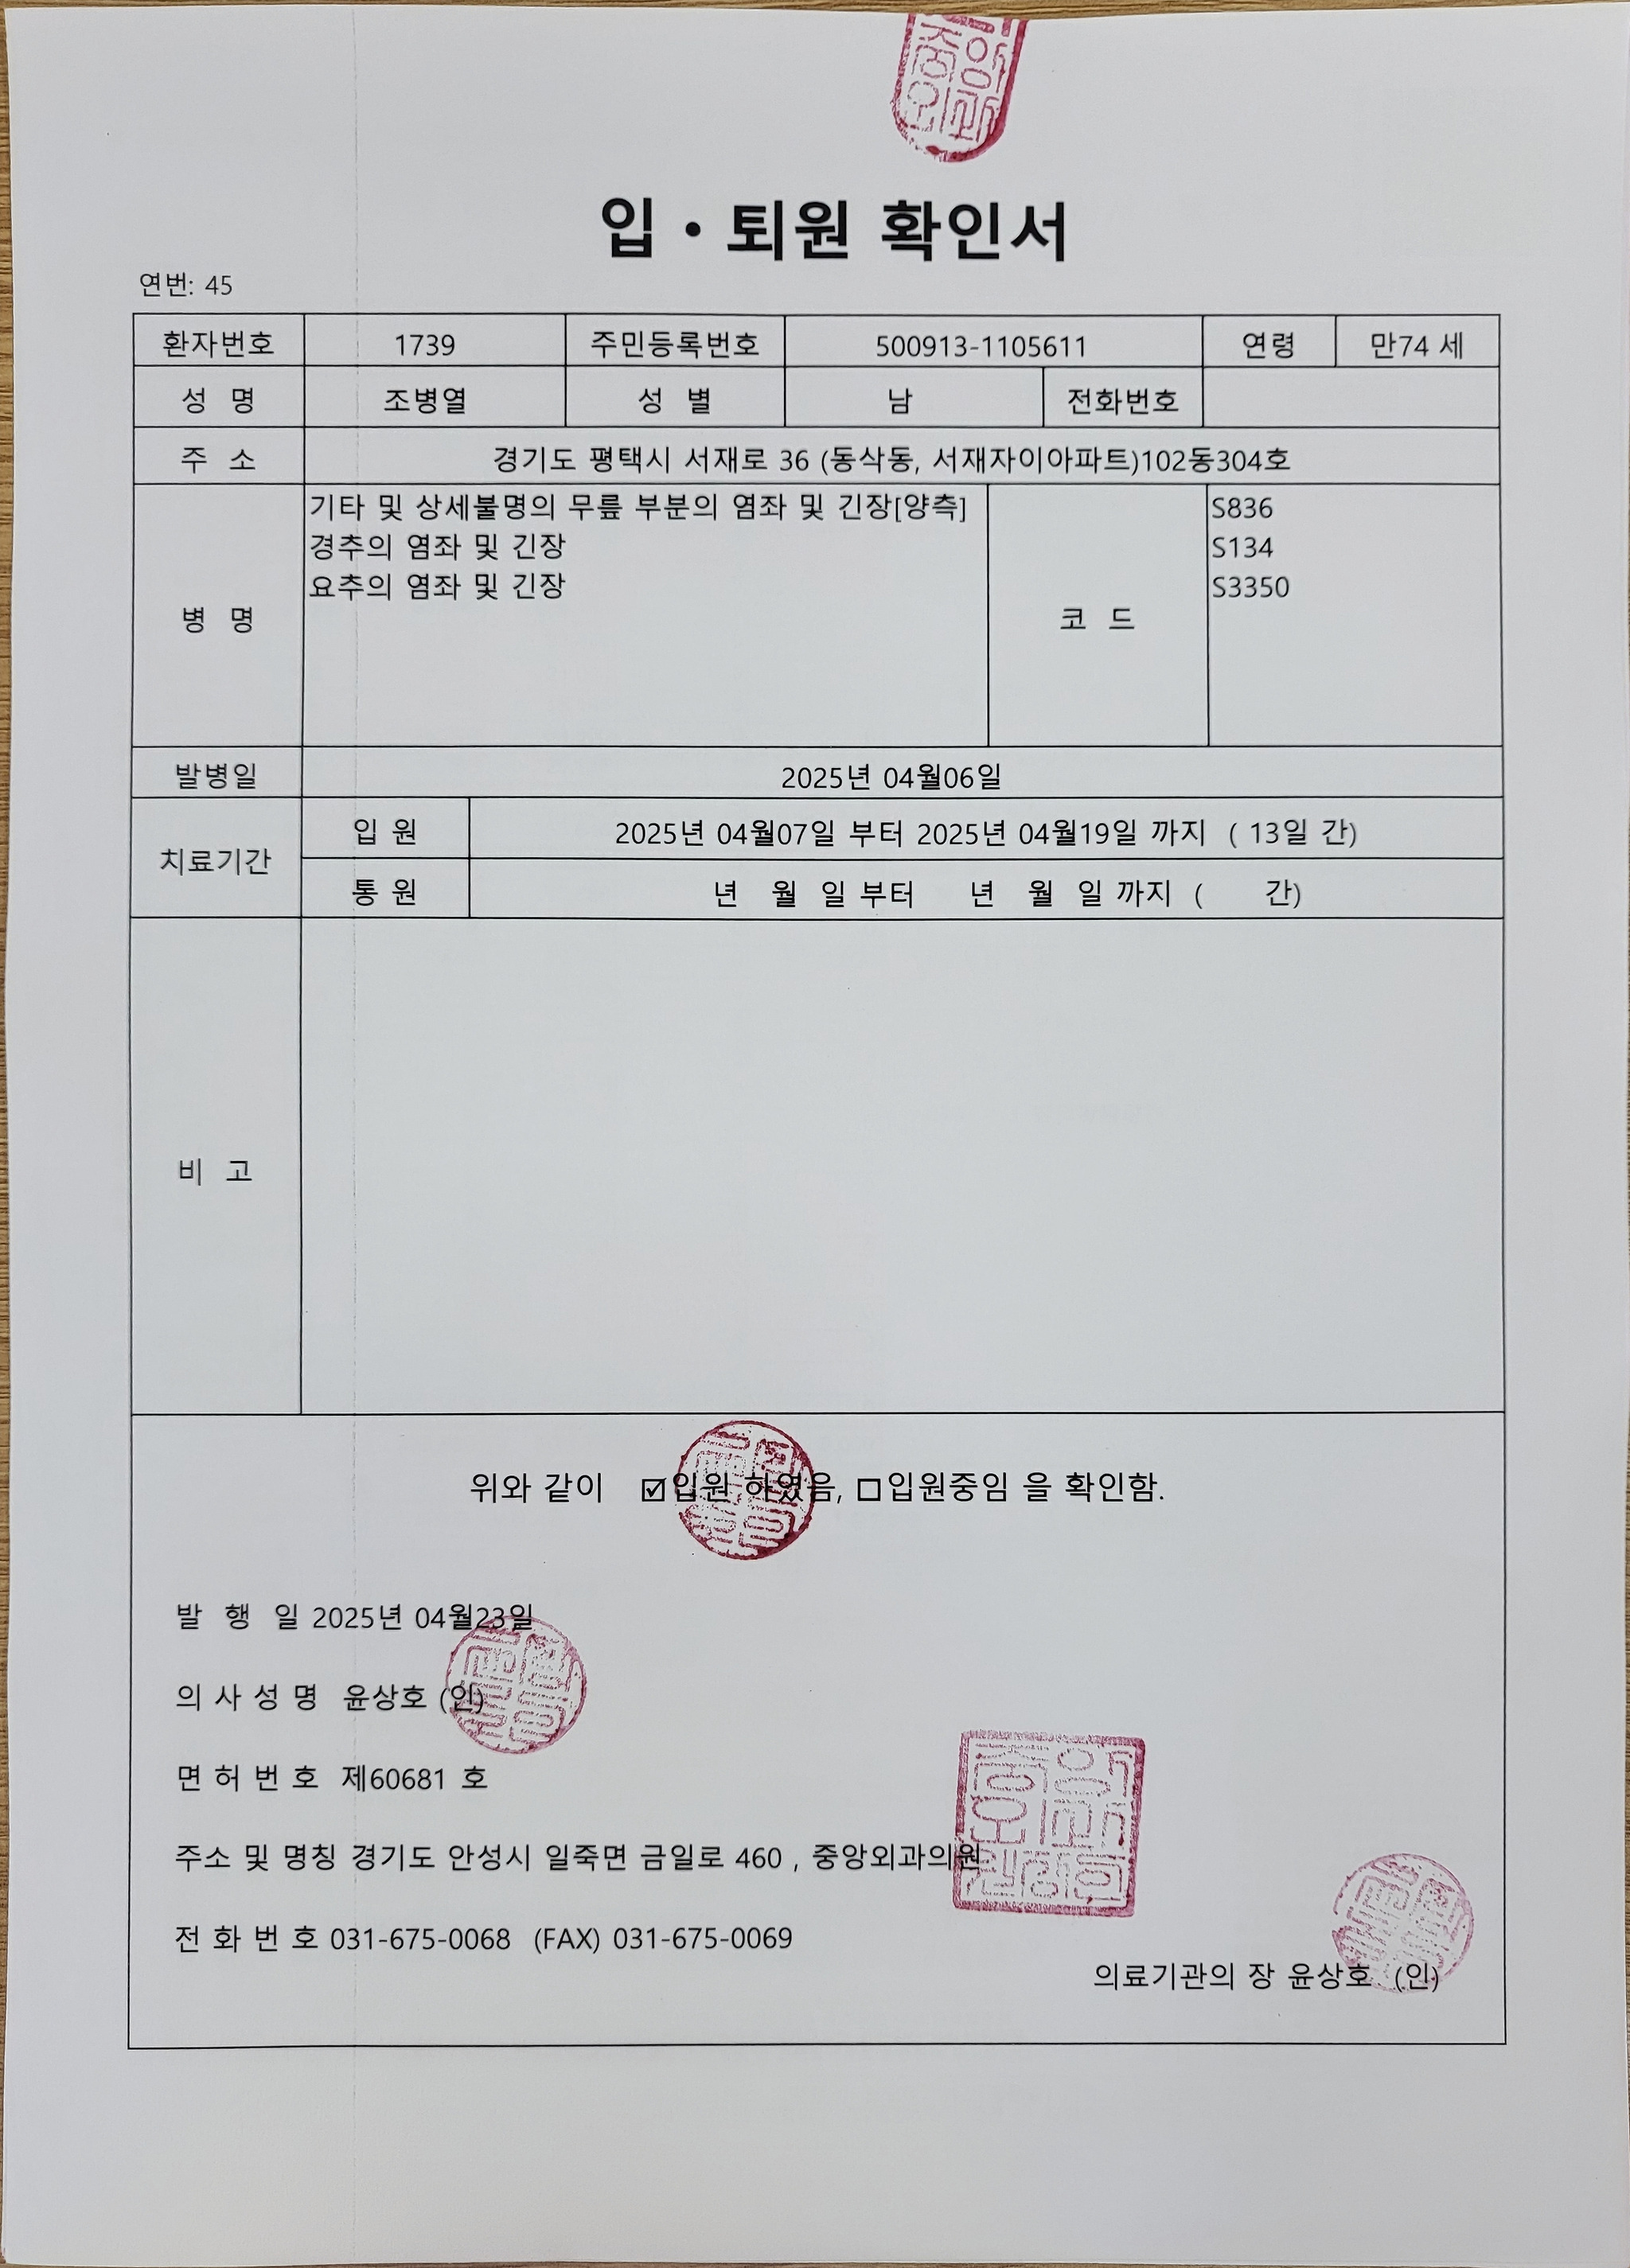 입 • 퇴원 확인서
연번: 45
환자번호 1739 주민등록번호 500913-1105611 연령 만74 세
성 명 조병열 성 별 남 전화번호
주 소 경기도 평택시 서재로 36 (동삭동, 서재자이아파트)102동304호
기타 및 상세불명의 무릎 부분의 염좌 및 긴장[양측] S836
경추의 염좌 및 긴장 S134
요추의 염좌 및 긴장 S3350
병 명 코 드
발병일 2025년 04월06일
치료기간
입 원 2025년 04월07일 부터 2025년 04월19일 까지 ( 13일 간)
통 원 년 월 일 부터 년 월 일 까지 ( 간)
비 고
위와 같이 ☑입원 하였음, □입원중임 을 확인함.
발 행 일 2025년 04월23일
의 사 성 명 윤상호 (인)
면 허 번 호 제60681 호
주소 및 명칭 경기도 안성시 일죽면 금일로 460 , 중앙외과의원
전 화 번 호 031-675-0068 (FAX) 031-675-0069
의료기관의 장 윤상호 (인)